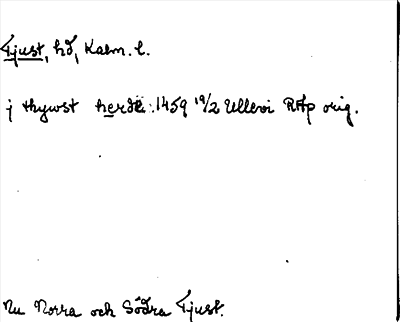 Tjust, hd, Kalm. l.
j thywst herde: 1459 19/2 Ullevi RAp orig.
Nu Norra och Södra Tjust.